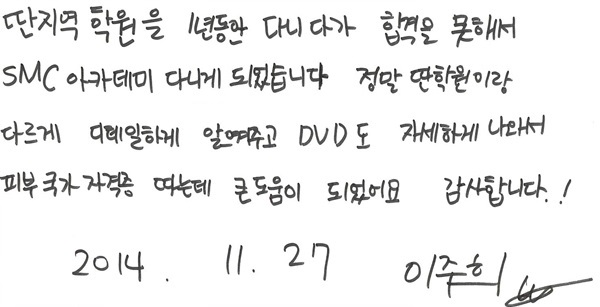 딴지역 학원을 1년동안 다니다가 합격을 못해서
SMC 아카데미 다니게 되었습니다 정말 딴학원이랑
다르게 디테일하게 알여주고 DVD도 자세하게 나와서
피부 국가 자격증 따는데 큰도움이 되었어요 감사합니다.!
2014. 11. 27 이주희